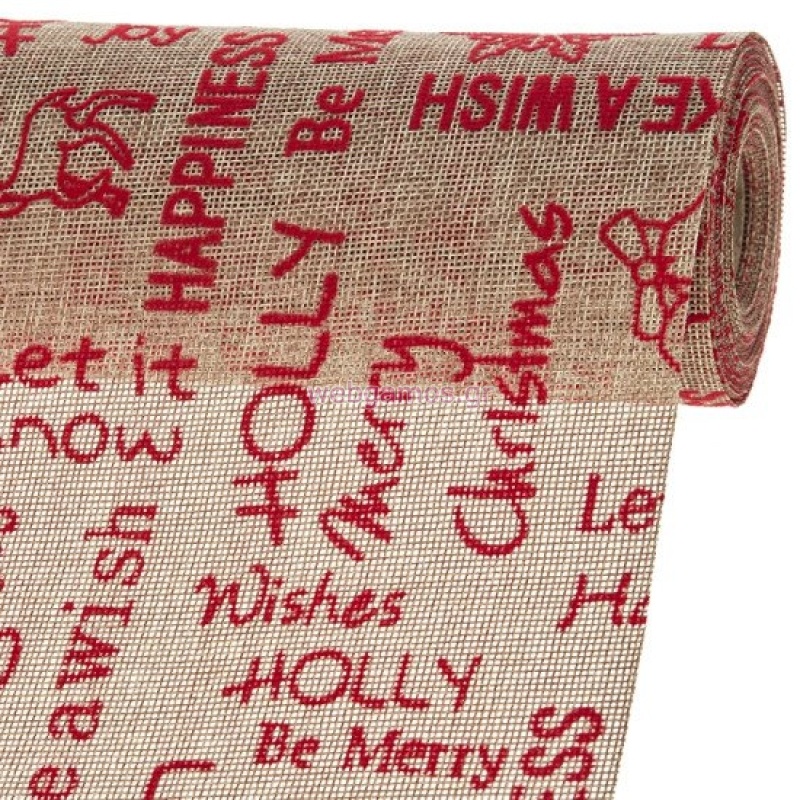 Joy
HAPPINESS
Be Me
KE A WISH
et it
now
HOLLY
Merry
Christmas
webgamos.gr
Le
Ha
e a wish
Wishes
HOLLY
Be Merry
ESS